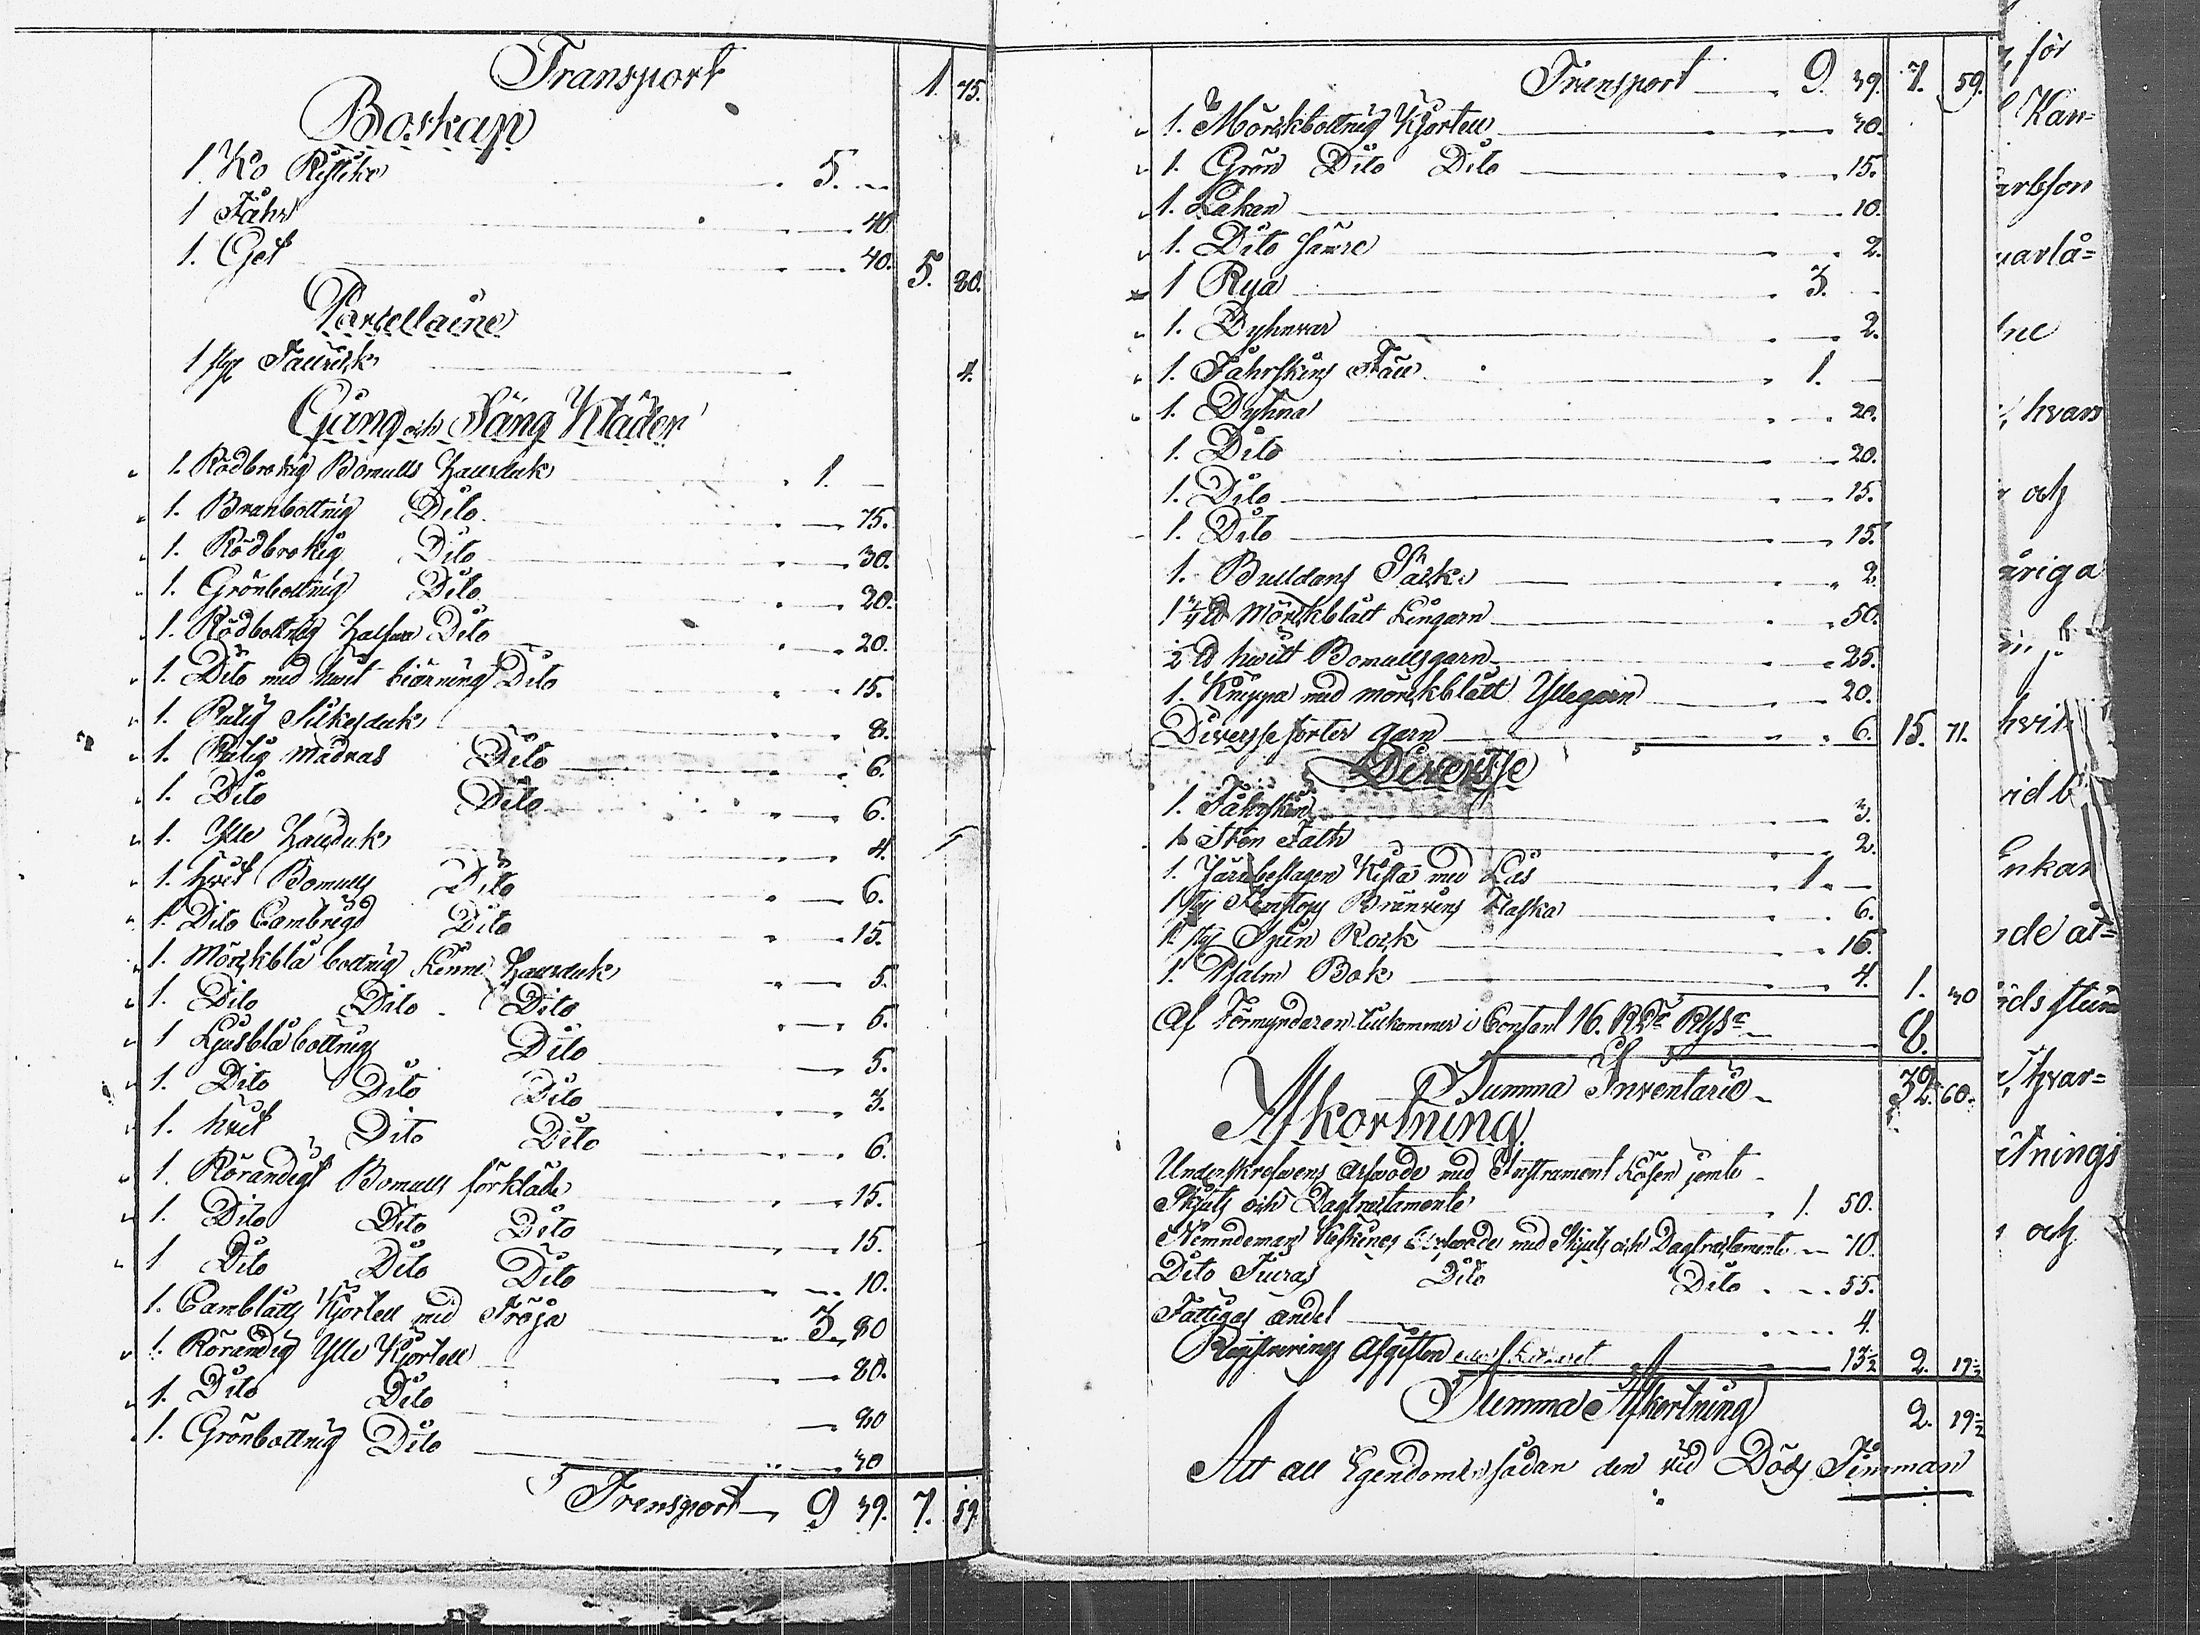 Transport 1. 75.
Boskap
1 Ko 5. —
1 Fåhr 40.
1. Get 40. 5. 80.
Porsellaine
1 4.
Gång och Säng Kläder
1. Rödbrokig Bomulls 1. —
1. Dito 75.
1. Rödbrokig Dito 30.
1. Grönbottnig Dito 20.
1. Rödbottnig Halfven Dito 20.
1. Dito med hwit Dito 15.
1. Rutig Silkesduk 8.
1. Rutig Madras Dito 6.
1. Dito Dito 6.
1. Ylle 4.
1. hvit Bomulls Dito 6.
1. Dito Cambrigs Dito 15.
1. Mörkblå bottnig Linne 5.
1. Dito Dito Dito 5.
1 Ljusblå bottnig Dito 5.
1. Dito Dito Dito 3.
1. hvit Dito Dito 6.
1. Rörandigt Bomulls förkläde 15.
1. Dito Dito Dito 15.
1 Dito Dito Dito 10.
1. Camblätts Kjortell med Tröja 3. 80
1. Rörandig Ylle Kjortell 80.
1. Dito Dito 80
1. Grönbottnig Dito 30
Transport 9 39. 7. 59.
Transport 9. 39. 7. 59.
1. Mörkbottnig Kjortell 30.
1. Grön Dito Dito 15.
1. Lakan 10.
1. Dito sämre 2.
1 Rya 3. —
1. Dyhnvar 2.
1. Fåhrskins Fäll 1. —
1. Dyhna 20.
1. Dito 20.
1. Dito 15.
1. Dito 15.
1. Bulldans Säck 2.
Mörkblått Lingarn 50.
hwitt Bomullsgarn 25.
1. Knippa med mörkblått Yllegarn 20.
Diversse sorter garn 6. 15. 71.
Diversse
1. Fåhrskin 3.
1 Sten Fath 2.
1. Järnbeslagen Kista med Lås 1. —
Bränvins Flaska 6.
1. Spin Rock 16.
1. Psalm Bok 4. 1. 30
Af Förmyndaren tillkommer i Contant 16. 8.
Summa Inventarie 32. 60.
Afkortning
Underskrefwens arfwode med Instrument Lösen jemte
Skjuts och Dagtractamente 1. 50.
Nemndeman arfwode med Skjuts och Dagtractamente 70.
Dito Dito Dito 55.
Fattigas andel 4.
Registrerings Afgiften 13½ 2. 19½
Summa Afkortning 2. 19½
Att all Egendomen sådan den vid Döds Timman
för
Kan=
arlsson
varlå=
ne
hvars
och
åriga
hvil
vid
Enkan
nde åt=
hvar=
tnings
och